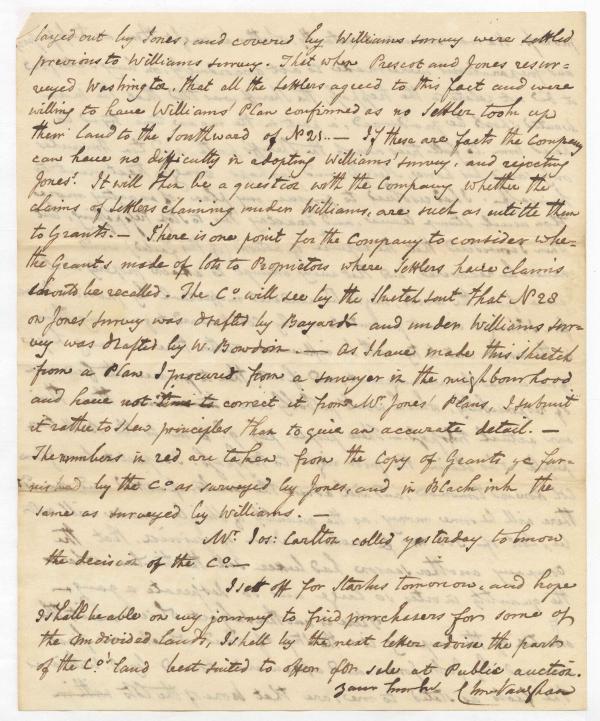 layed out by Jones, and covered by Williams survey were settled
previous to Williams survey. That when Prescot and Jones resur-
veyed Washington, that all the settlers agreed to this fact and were
willing to have Williams' Plan confirmed as no settler took up
their land to the Southward of No 21. — If these are facts the Company
can have no difficulty in adopting Williams' survey, and rejecting
Jones'. It will then be a question with the Company whether the
claims of settlers claiming under Williams, are such as entitle them
to Grants. — There is one point for the Company to consider whe-
the Grants made of lots to Proprietors where settlers have claims
should be recalled. The Co. will see by the sketch sent that No 28
on Jones' survey was drafted by Bayard and under Williams sur-
vey was drafted by W. Bowdoin. — As I have made this sketch
from a Plan I procured from a surveyor in the neighbourhood
and have not time to correct it from Mr. Jones' Plans, I submit
it rather to shew principles than to give an accurate detail. —
The numbers in red are taken from the Copy of Grants &c fur-
nished by the Co as surveyed by Jones, and in Black ink the
same as surveyed by Williams. —
Mr. Jos: Carlton called yesterday to know
the decision of the Co —
I set off for Starks tomorrow, and hope
I shall be able on my journey to find purchasers for some of
the undivided lands, I shall by the next letter advise the parts
of the Co's land best suited to offer for sale at Public auction.
Vaughan